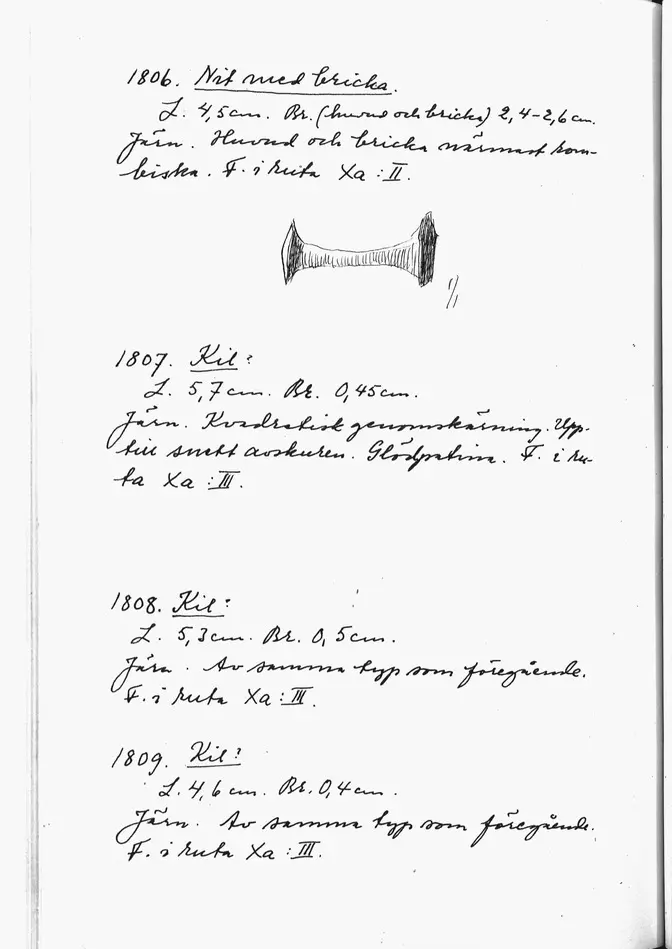 1806. Nit med bricka.
L. 4,5 cm. Br. (huvud och bricka) 2,4–2,6 cm.
Järn. Huvud och bricka närmast rom-
biska. F. i ruta Xa : II.
1/1
1807. Kil?
L. 5,7 cm. Br. 0,45 cm.
Järn. Kvadratisk genomskärning. Upp-
till snett avskuren. Glödpatina. F. i ru-
ta Xa : III.
1808. Kil?
L. 5,3 cm. Br. 0,5 cm.
Järn. Av samma typ som föregående.
F. i ruta Xa : III.
1809. Kil?
L. 4,6 cm. Br. 0,4 cm.
Järn. Av samma typ som föregående.
F. i ruta Xa : III.